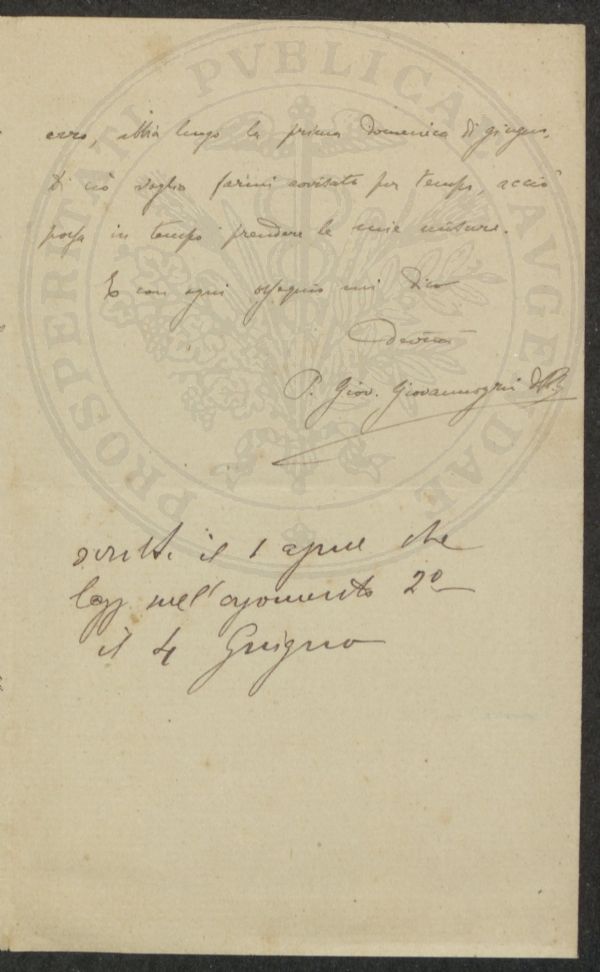 PROSPERITATI PVBLICAE AVGENDAE
erro, abbia luogo la prima domenica di giugno.
Di ciò voglia farmi avvisato per tempo, acciò
possa in tempo prendere le mie misure.
E con ogni ossequio mi dico
Devmo
P. Giov. Giovannozzi
il 1 aprile che
legg. nell'argomento 2º
il 4 Giugno